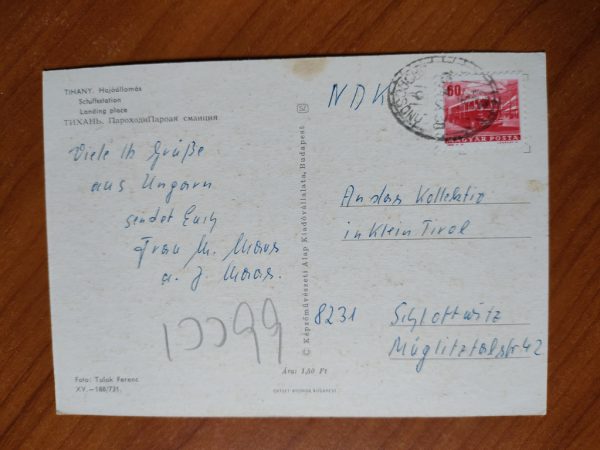 TIHANY. Hajóállomás
Schiffsstation
Landing place
ТИХАНЬ. ПароходиПароая смаиция
Viele lb Grüße
aus Ungarn
sendet Euch
Frau M. Maas
u. J. Maas.
Foto: Tulok Ferenc
XV.—188/731.
© Képzőművészeti Alap Kiadóvállalata, Budapest
Ára: 1,80 Ft
OFFSET-NYOMDA BUDAPEST
NDK
60f
MAGYAR POSTA
An das Kollektiv
in Klein Tirol
8231 Schlottwitz
Müglitztalstr 42